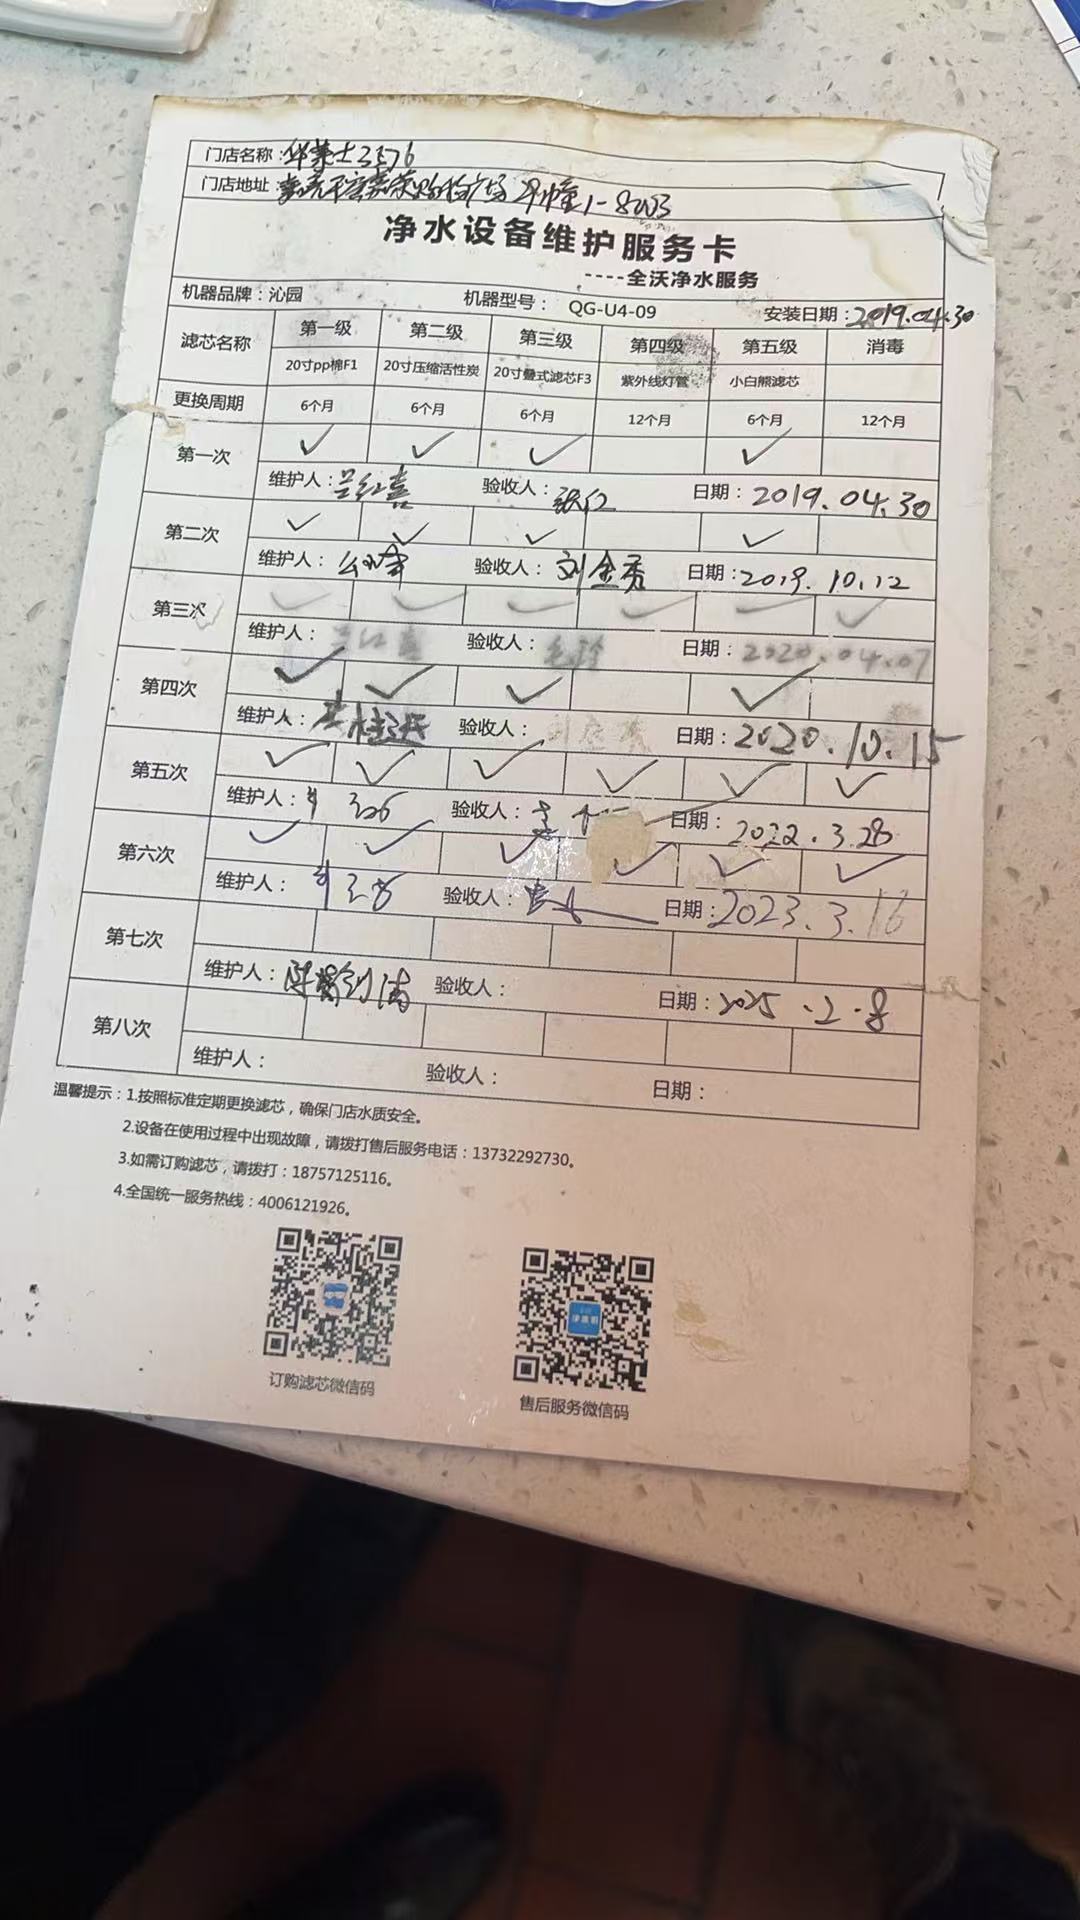 门店名称：华莱士3576
门店地址：购物广场 1-8003
净水设备维护服务卡
----全沃净水服务
机器品牌：沁园 机器型号： QG-U4-09 安装日期：2019.04.30
滤芯名称 第一级 第二级 第三级 第四级 第五级 消毒
20寸pp棉F1 20寸压缩活性炭 20寸叠式滤芯F3 紫外线灯管 小白熊滤芯
更换周期 6个月 6个月 6个月 12个月 6个月 12个月
第一次 ✓ ✓ ✓ ✓
维护人：吕红喜 验收人： 日期：2019.04.30
第二次 ✓ ✓ ✓ ✓
维护人： 验收人：刘金秀 日期：2019.10.12
第三次 ✓ ✓ ✓ ✓ ✓ ✓
维护人： 验收人： 日期：2020.04.07
第四次 ✓ ✓ ✓ ✓
维护人： 验收人： 日期：2020.10.15
第五次 ✓ ✓ ✓ ✓ ✓ ✓
维护人： 验收人： 日期：2022.3.28
第六次 ✓ ✓ ✓ ✓ ✓ ✓
维护人： 验收人： 日期：2023.3.16
第七次
维护人： 验收人： 日期：2025.2.8
第八次
维护人： 验收人： 日期：
温馨提示：1.按照标准定期更换滤芯，确保门店水质安全。
2.设备在使用过程中出现故障，请拨打售后服务电话：13732292730。
3.如需订购滤芯，请拨打：18757125116。
4.全国统一服务热线：4006121926。
订购滤芯微信码 售后服务微信码